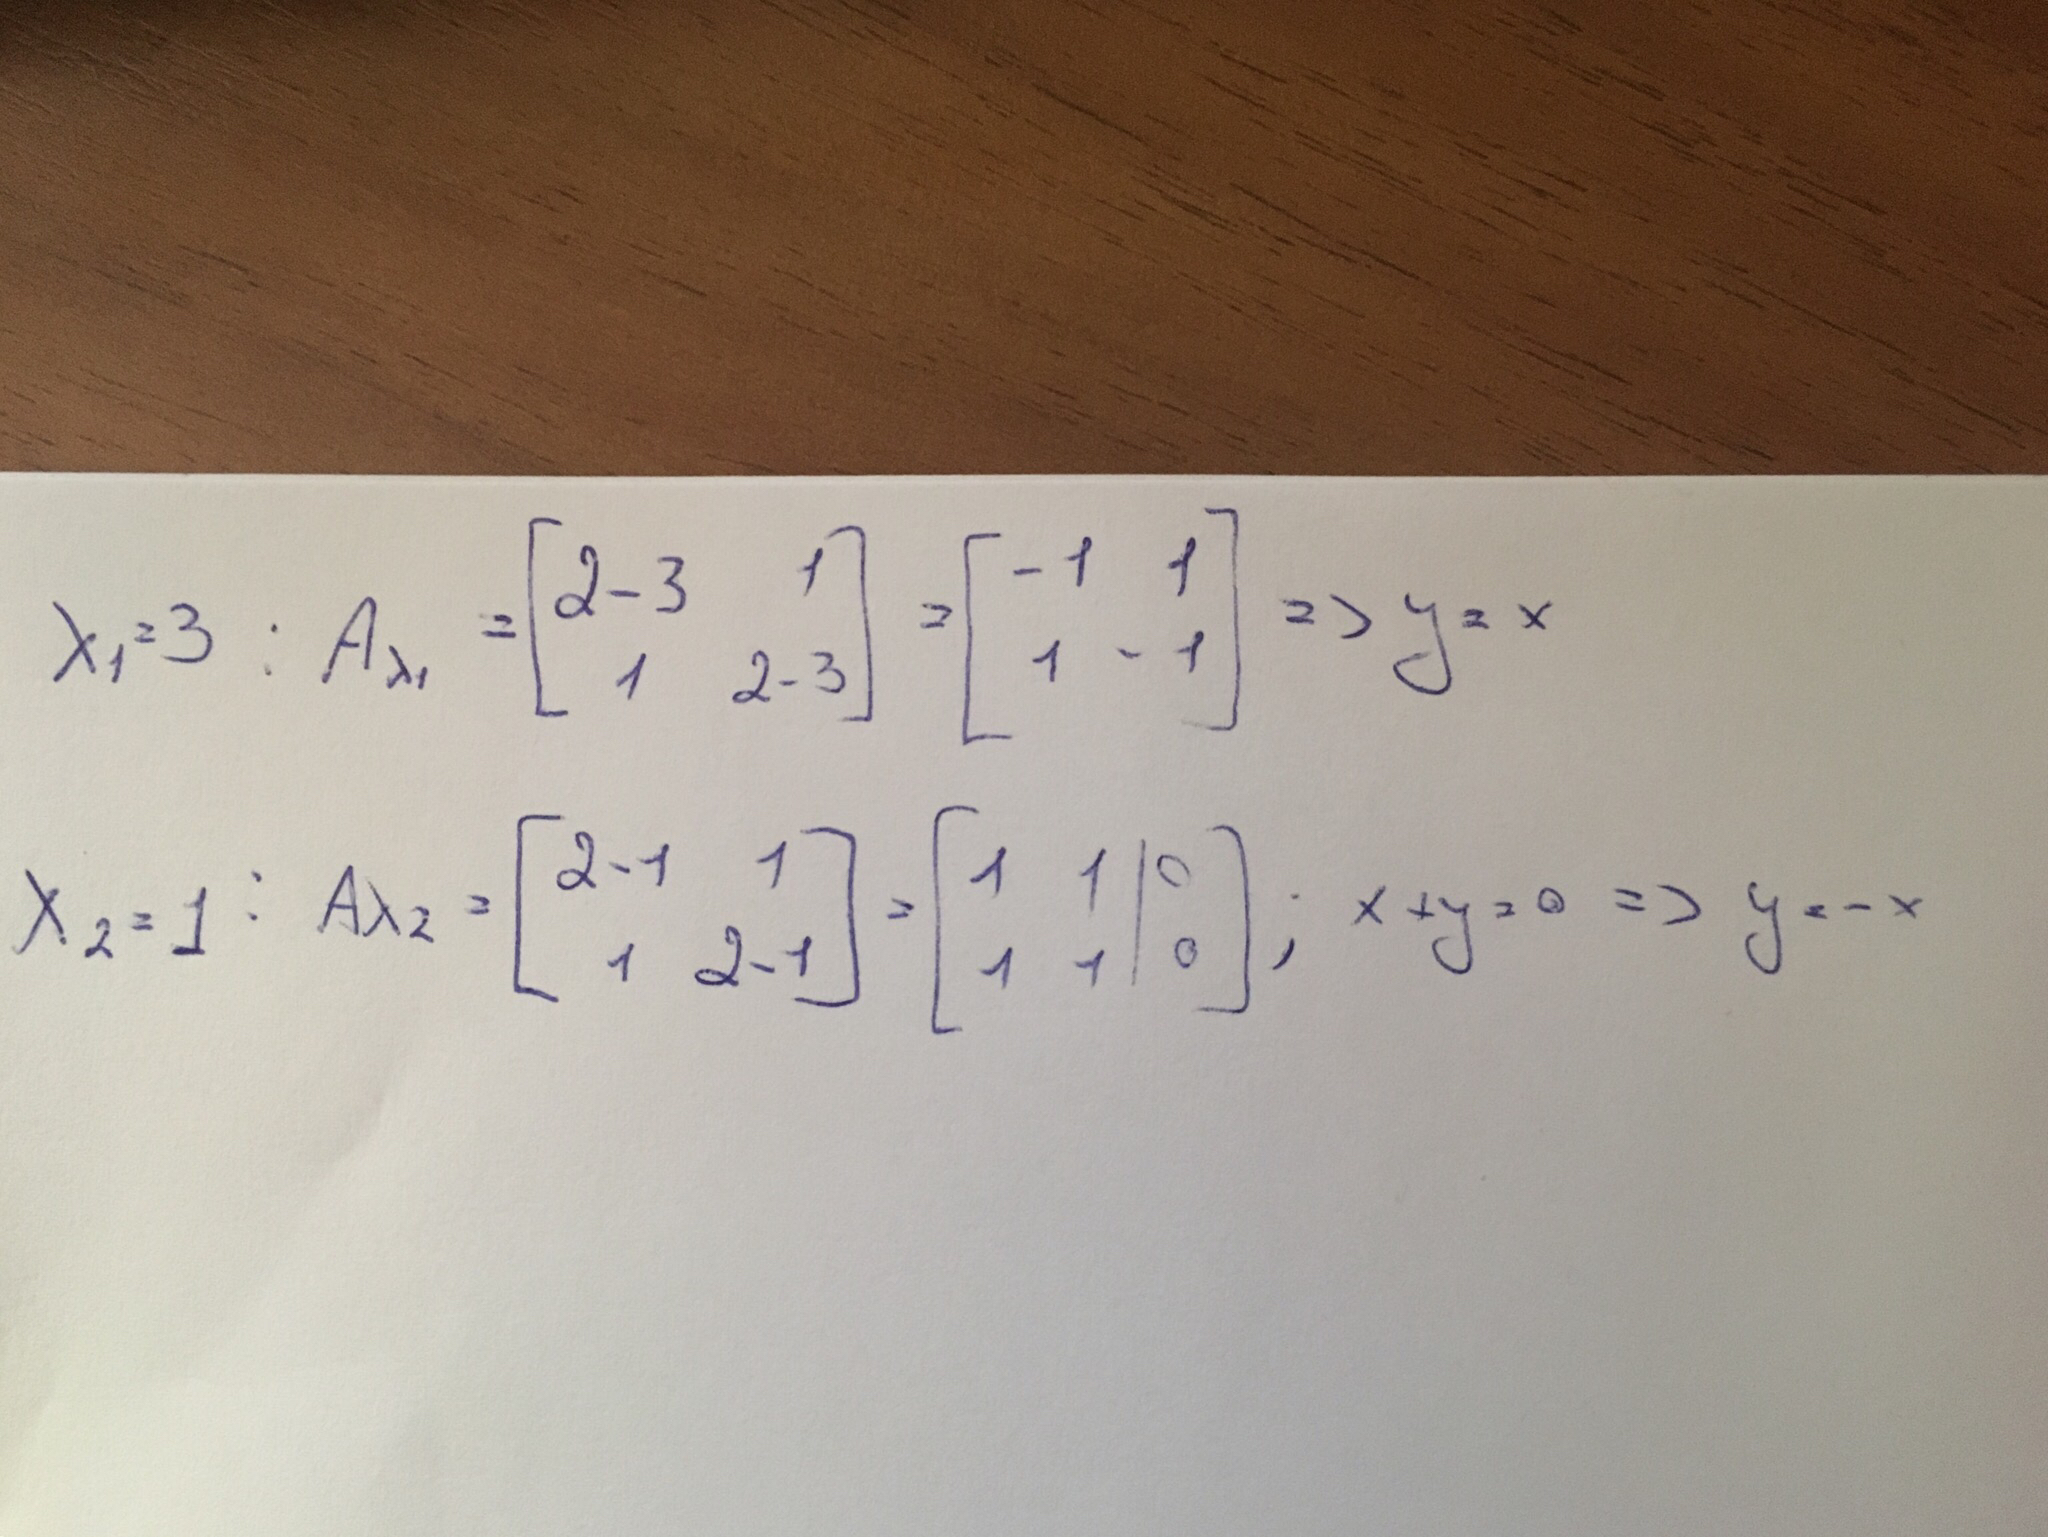 λ₁=3 : Aλ₁ = [2-3 1; 1 2-3] = [-1 1; 1 -1] => y = x
λ₂=1 : Aλ₂ = [2-1 1; 1 2-1] = [1 1 | 0; 1 1 | 0] ; x+y=0 => y=-x